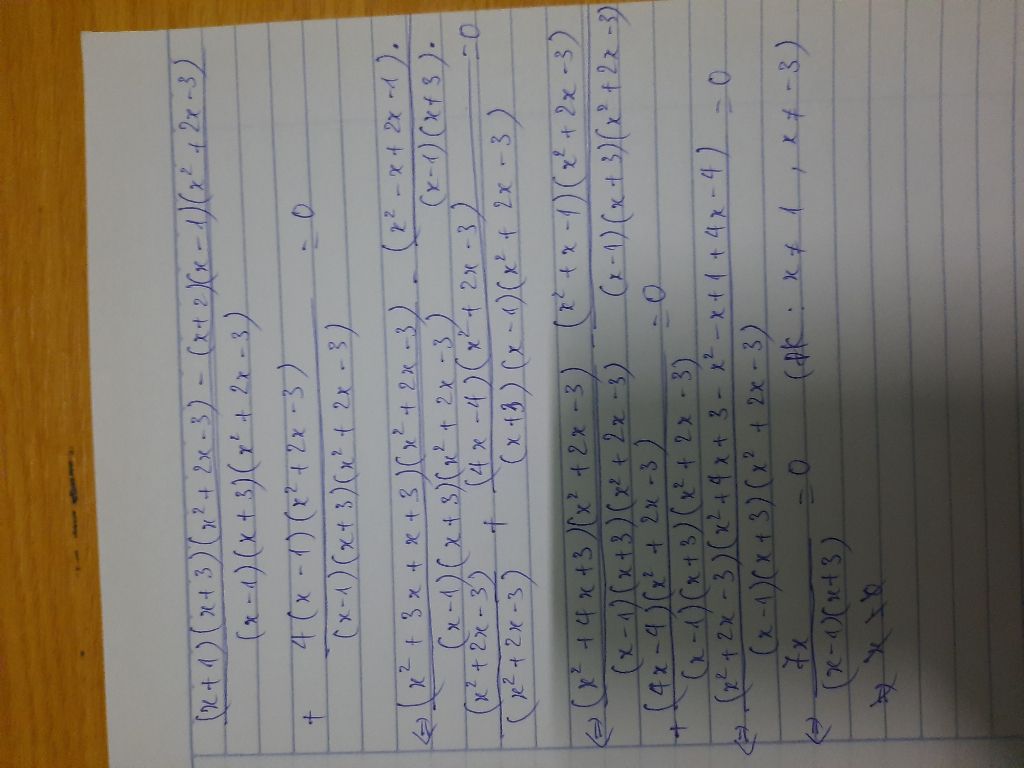 (x+1)(x+3)(x²+2x-3) - (x+2)(x-1)(x²+2x-3)
(x-1)(x+3)(x²+2x-3)
+ 4(x-1)(x²+2x-3) = 0
(x-1)(x+3)(x²+2x-3)
⇔ (x²+3x+x+3)(x²+2x-3) - (x²-x+2x-1).
(x-1)(x+3)(x²+2x-3) (x-1)(x+3).
(x²+2x-3) + (4x-4)(x²+2x-3) = 0
(x²+2x-3) (x+3)(x-1)(x²+2x-3)
⇔ (x²+4x+3)(x²+2x-3) - (x²+x-1)(x²+2x-3)
(x-1)(x+3)(x²+2x-3) (x-1)(x+3)(x²+2x-3)
+ (4x-4)(x²+2x-3) = 0
(x-1)(x+3)(x²+2x-3)
⇔ (x²+2x-3)(x²+4x+3-x²-x+1+4x-4) = 0
(x-1)(x+3)(x²+2x-3)
⇔ 7x = 0 (ĐK: x≠1, x≠-3)
(x-1)(x+3)